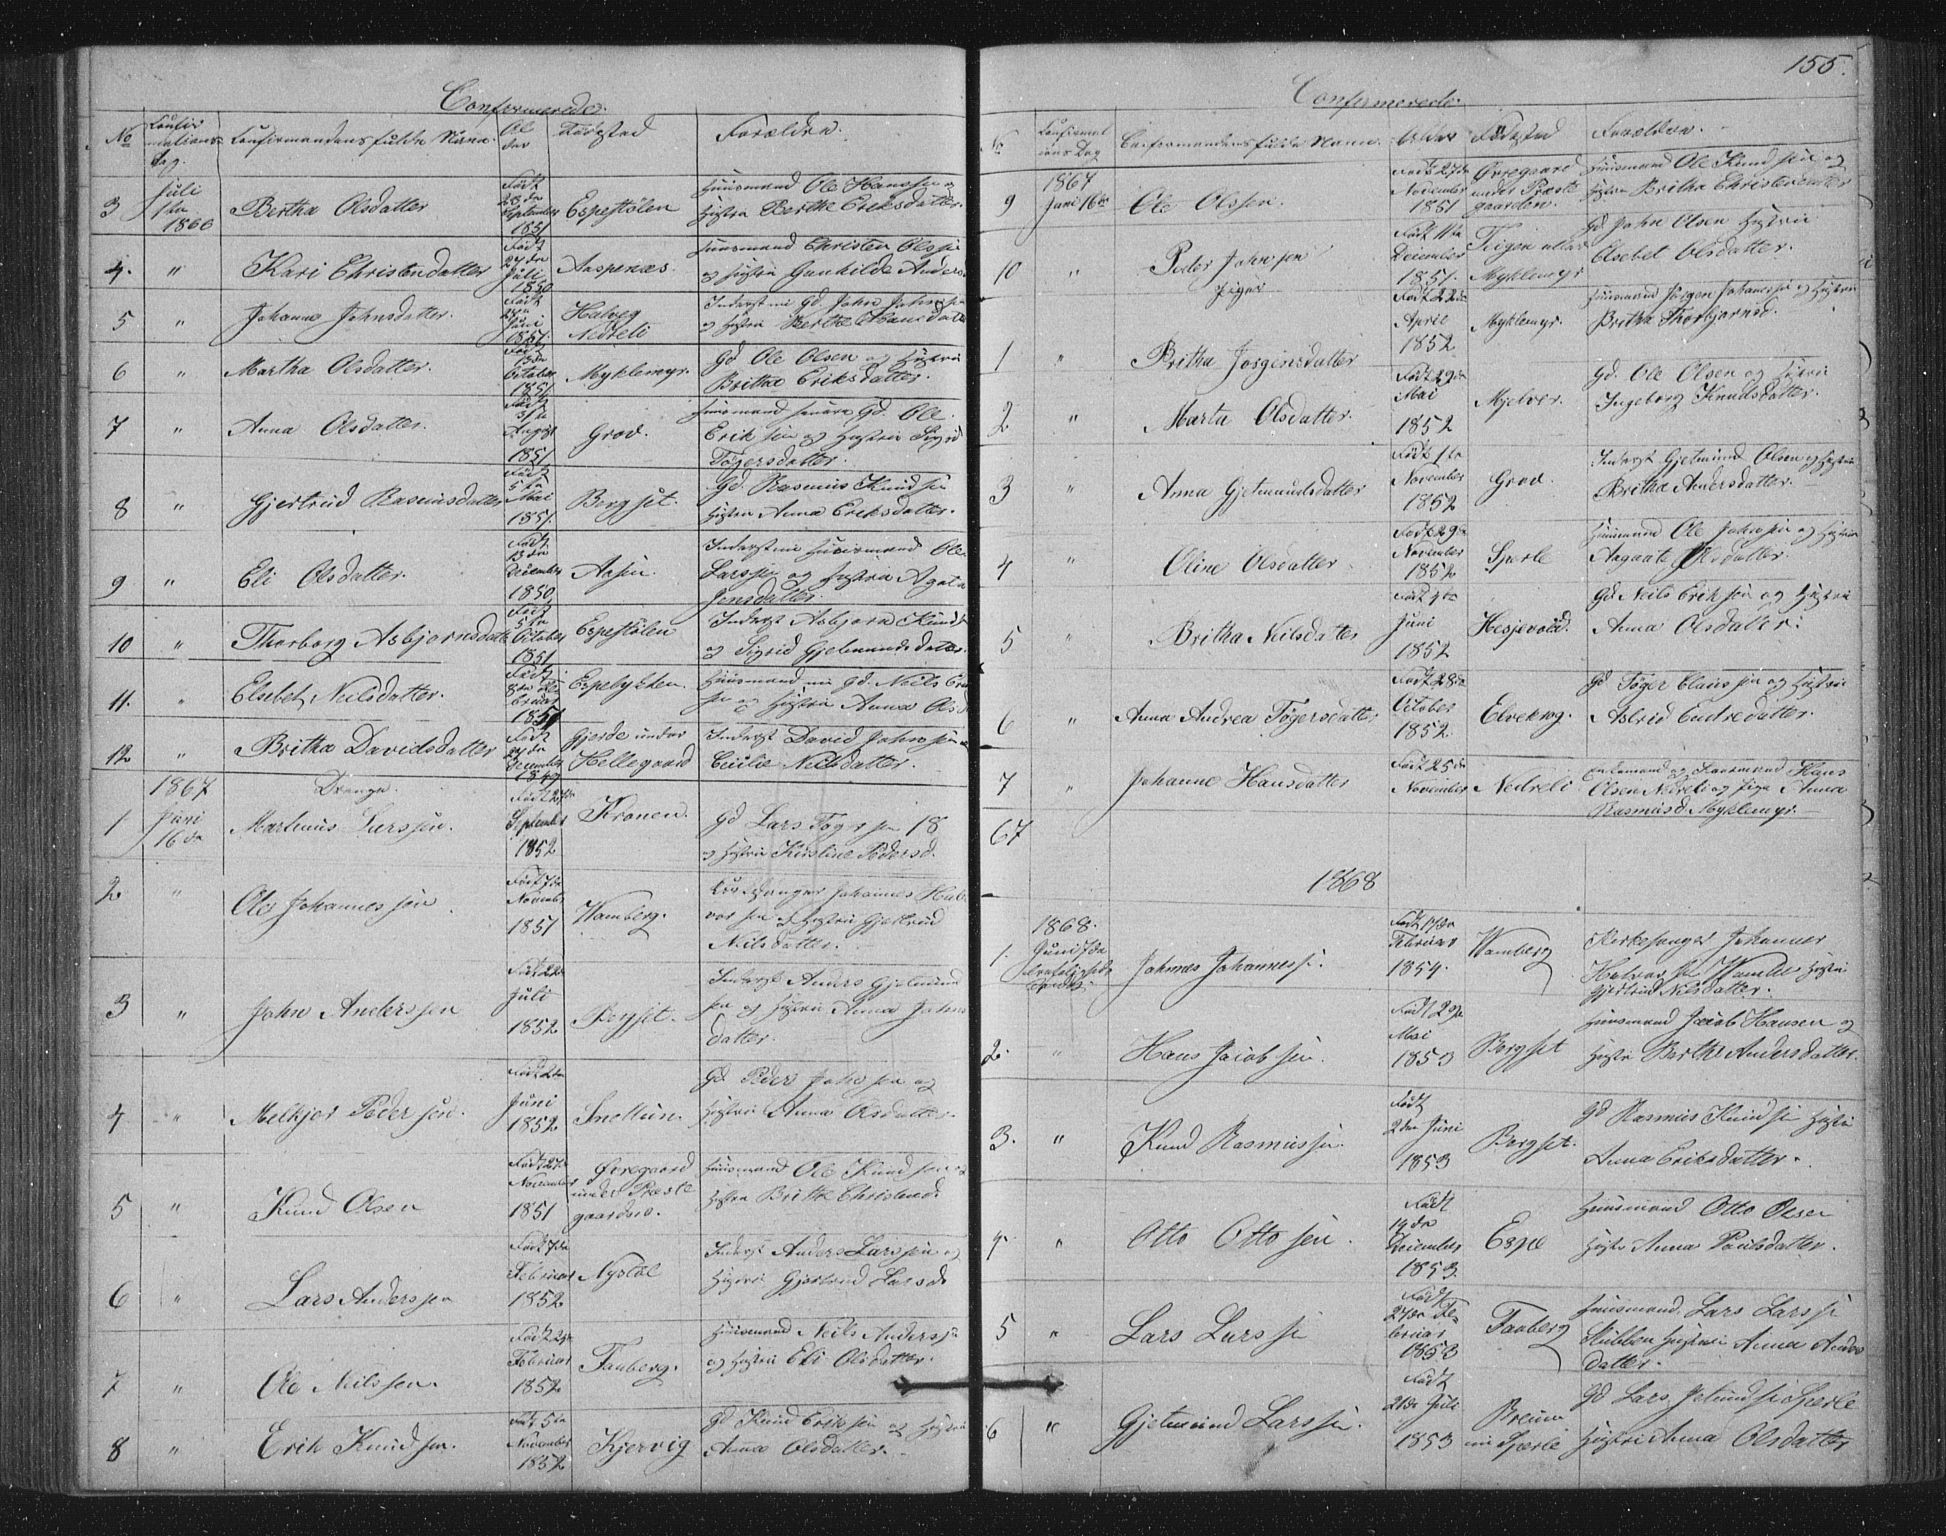 Confirmerede.
No
Confir
mations
Dag.
Confirmandens fulde Navn.
Al
der
Fødested
Forældre.
3
Juli
1866
Bertha Olsdatter
Født
September
1851
Espestølen
Huusmand Ole Hanssen og
Hustru Berthe Eriksdatter.
4.
"
Kari Christendatter
Født
24de
Juli
1850
Aspenæs.
Huusmand Christen Olssen
og Hustru Gunhilde Anders
5
"
Johanne Johnsdatter.
Født
Juni
1851.
Halveg
Nedreli
Inderst Gd. John Johnsen
og Hustru Berthe Hansdatter
6
"
Martha Olsdatter.
Født
13de
October
1851
Myklemyr.
Gd Ole Olsen og Hustru
Britha Eriksdatter.
7
"
Anna Olsdatter.
Født
August
1851
Grov.
Huusmand Gd. Ole
Eriksen og Hustru Sigrid
Tøgersdatter.
8
"
Gjertrud Rasmusdatter
Født
5te
Mai
1851.
Borgset.
Gd. Rasmus Knudsen
Hustru Anna Eriksdatter.
9
"
Eli Olsdatter.
Født
13de
December
1850
Aasen.
Inderst Huusmand Ole
Larssen og Hustru Agata
Jensdatter.
10
"
Thorborg Asbjørnsdatt
Født
5te
October
1851
Espestølen
Inderst Asbjørn Knuds
og Sigrid Gjetmundsdatter.
11.
"
Elsebet Neilsdatter.
Født
8de
bruar
1851
Espelykken.
Huusmand Gd. Neils
og Hustru Anna Ols
12
"
Britha Davidsdatter
Født
24de
December
1849
Gjerde under
Hellegaard
Inderst David Johnsen
Cecilie Neilsdatter.
1867
Drenge.
1
Juni
16de
Marthius Larssen.
Født
September
1852
Kronen.
Gd Lars Tøgersen 18
og Hustru Kirstine Pedersd.
2
"
Ole Johannessen
Født 7de
November
1851
Wamberg.
Kirkesanger Johannes Hal
vorsen og Hustru Gjertrud
Neilsdatter.
3
"
John Anderssen
Juli
1852
Borgset.
Inderst Anders Gjetmund
sen og Hustru Anna Johns
datter.
4
"
Melkjor Pedersen.
Juni
1852
Snellun.
Gd Peder Johnsen og
Hustru Anna Olsdatter.
5
"
Knud Olsen
Født 27de
November
1851
Øvregaard
under Præste
gaarden.
Huusmand Ole Knudsen
Hustru Britha Christend.
6
"
Lars Anderssen
Født 7de
Februar
1852
Nystøl
Inderst Anders Larssen og
Hustru Gjertrud Larsd.
7
"
Ole Neilssen.
Februar
1852
Fauberg.
Huusmand Neils Anderss
og Hustru Eli Olsdatter.
8
"
Erik Knudsen.
Født 5te
November
1852
Kjervig
Gd Knud Eriksen og Hustru
Anna Olsdatter.
155.
Confirmerede.
No
Confirmat
ions Dag
Confirmandens fulde Navn
Alder
Fødested
Forældre.
9
1867
Juni 16de
Ole Olssen.
Født 27de
November
1851
Øvregaard
under Præste
gaarden.
Huusmand Ole Knudsen og
Hustru Britha Christendatter
10
"
Peder Johnsen
Født 11te
December
1851.
Myklemyr
Gd John Olsen Hustru
Elsebet Olsdatter.
Piger
1
"
Britha Jørgensdatter
Født 22de
April
1852
Myklemyr.
Huusmand Jørgen Johannessen og Hustru
Britha Thorbjørnsd.
2
"
Marta Olsdatter.
Født 29de
Mai
1852
Mjelver.
Gd. Ole Olsen og Hustru
Ingeborg Knudsdatter.
3
"
Anna Gjetmundsdatter
Født 1te
November
1852
Grov.
Inderst Gjetmund Olsen og Hustru
Britha Andersdatter.
4
"
Oline Olsdatter.
Født 29de
November
1852
Sperle
Huusmand Ole Johnsen og Hustru
Aagaate Olsdatter.
5
"
Britha Neilsdatter
Juni
1852
Hesjevold.
Gd Neils Eriksen og Hustru
Anna Olsdatter.
6
"
Anna Andrea Tøgersdatter
Født 28de
October
1852.
Elvekrog.
Gd Tøger Claussen og Hustru
Astrid Endredatter.
7
"
Johanne Hansdatter
Født 25de
November
Nedreli
Enkemand og Hans
Olsen Nedreli og Pige Anna
Rasmusd. Myklemyr.
67
1868
1868.
1.
Juni 7de
Johnes Johannessen.
Februar
1854.
Wamberg
Kirkesanger Johannes
Halvorsen Hustru
Gjertrud Nilsdatter.
2.
"
Hans Jacobsen.
Født 29de
Mai
1853
Borgset
Huusmand Jacob Hansen og
Hustru Berthe Andersdatter.
3.
"
Knud Rasmussen.
Født
2den Juni
1853
Borgset.
Gd Rasmus Knudsen Hustru
Anna Eriksdatter.
4.
"
Otto Ottosen.
Født
19de
December
1853.
Espe
Huusmand Otto Olsen
Hustru Anna Paulsdatter.
5
"
Lars Larssen
Født
24de Fe
bruar
1853
Fauberg
Huusmand Lars Larssen
Stubben Hustru Anna Anders
datter.
6
"
Gjetmund Larssen.
Født
21de Juli
1853
Breum
Sperle
Gd Lars Gjetmundsen Sperle
Hustru Anna Olsdatter